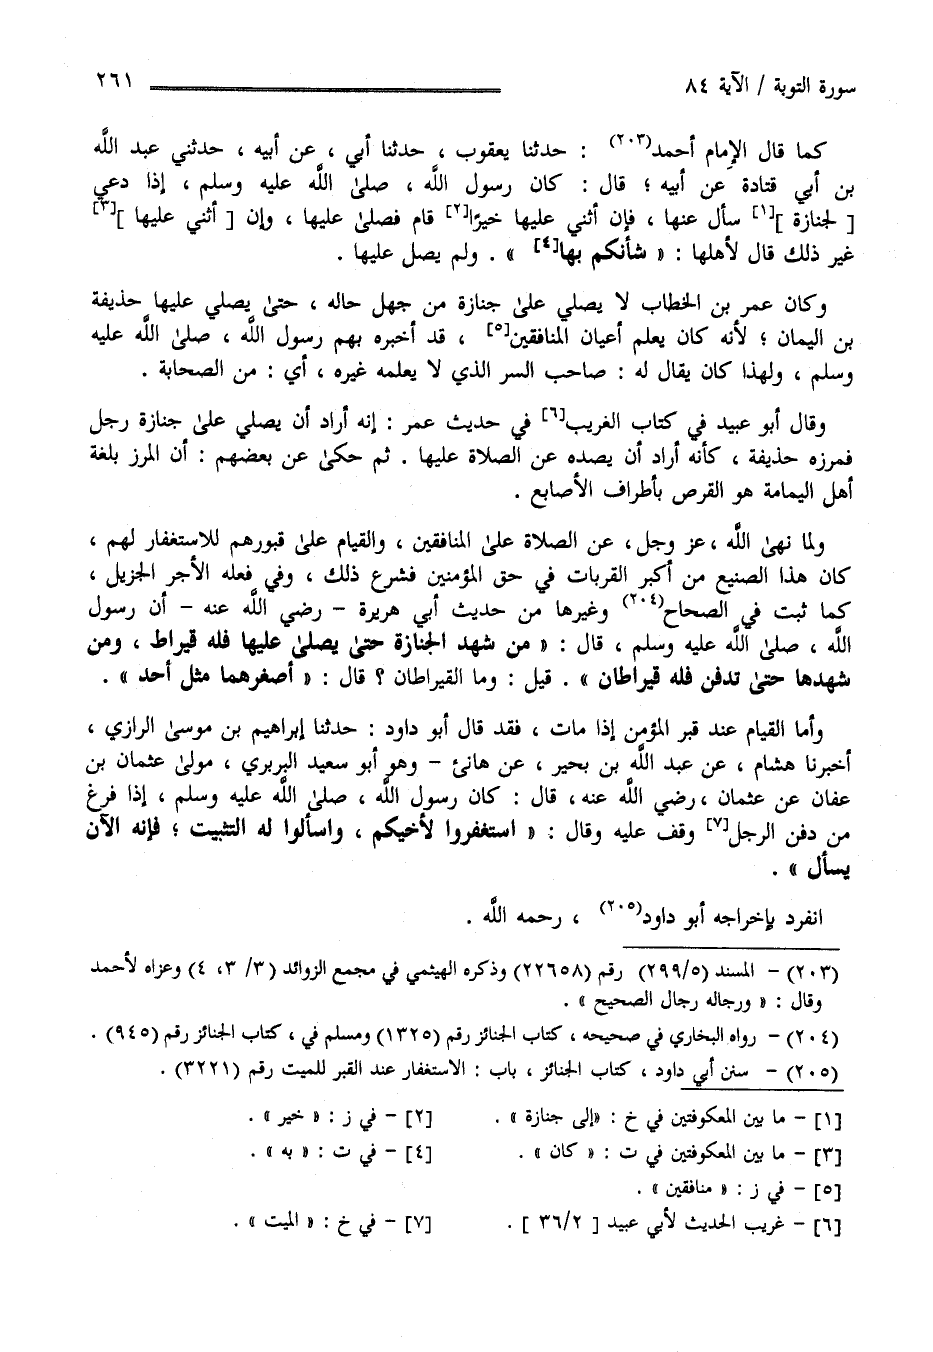 سورة التوبة / الآية ٨٤ ٢٦١
كما قال الإمام أحمد(٢٠٣) : حدثنا يعقوب ، حدثنا أبي ، عن أبيه ، حدثني عبد اللَّه
بن أبي قتادة عن أبيه ؛ قال : كان رسول اللَّه ، صلىٰ اللَّه عليه وسلم ، إذا دعي
[ لجنازة ][١] سأل عنها ، فإن أثني عليها خيرًا[٢] قام فصلىٰ عليها ، وإن [ أثني عليها ][٣]
غير ذلك قال لأهلها : « شأنكم بها[٤] » . ولم يصل عليها .
وكان عمر بن الخطاب لا يصلي علىٰ جنازة من جهل حاله ، حتىٰ يصلي عليها حذيفة
بن اليمان ؛ لأنه كان يعلم أعيان المنافقين[٥] ، قد أخبره بهم رسول اللَّه ، صلىٰ اللَّه عليه
وسلم ، ولهذا كان يقال له : صاحب السر الذي لا يعلمه غيره ، أي : من الصحابة .
وقال أبو عبيد في كتاب الغريب[٦] في حديث عمر : إنه أراد أن يصلي علىٰ جنازة رجل
فمرزه حذيفة ، كأنه أراد أن يصده عن الصلاة عليها . ثم حكىٰ عن بعضهم : أن المرز بلغة
أهل اليمامة هو القرص بأطراف الأصابع .
ولما نهىٰ اللَّه ، عز وجل ، عن الصلاة علىٰ المنافقين ، والقيام علىٰ قبورهم للاستغفار لهم ،
كان هذا الصنيع من أكبر القربات في حق المؤمنين فشرع ذلك ، وفي فعله الأجر الجزيل ،
كما ثبت في الصحاح(٢٠٤) وغيرها من حديث أبي هريرة – رضي اللَّه عنه – أن رسول
اللَّه ، صلىٰ اللَّه عليه وسلم ، قال : « من شهد الجنازة حتىٰ يصلىٰ عليها فله قيراط ، ومن
شهدها حتىٰ تدفن فله قيراطان » . قيل : وما القيراطان ؟ قال : « أصغرهما مثل أحد » .
وأما القيام عند قبر المؤمن إذا مات ، فقد قال أبو داود : حدثنا إبراهيم بن موسىٰ الرازي ،
أخبرنا هشام ، عن عبد اللَّه بن بحير ، عن هانئ – وهو أبو سعيد البربري ، مولىٰ عثمان بن
عفان عن عثمان ، رضي اللَّه عنه ، قال : كان رسول اللَّه ، صلىٰ اللَّه عليه وسلم ، إذا فرغ
من دفن الرجل[٧] وقف عليه وقال : « استغفروا لأخيكم ، واسألوا له التثبيت ؛ فإنه الآن
يسأل » .
انفرد بإخراجه أبو داود(٢٠٥) ، رحمه اللَّه .
(٢٠٣) – المسند (٢٩٩/٥) رقم (٢٢٦٥٨) وذكره الهيثمي في مجمع الزوائد (٣/ ٣، ٤) وعزاه لأحمد
وقال : « ورجاله رجال الصحيح » .
(٢٠٤) – رواه البخاري في صحيحه ، كتاب الجنائز رقم (١٣٢٥) ومسلم في ، كتاب الجنائز رقم (٩٤٥) .
(٢٠٥) – سنن أبي داود ، كتاب الجنائز ، باب : الاستغفار عند القبر للميت رقم (٣٢٢١) .
[١] – ما بين المعكوفتين في خ : «إلى جنازة » . [٢] – في ز : « خير » .
[٣] – ما بين المعكوفتين في ت : « كان » . [٤] – في ت : « به » .
[٥] – في ز : « منافقين » .
[٦] – غريب الحديث لأبي عبيد [ ٣٦/٢ ] . [٧] – في خ : « الميت » .